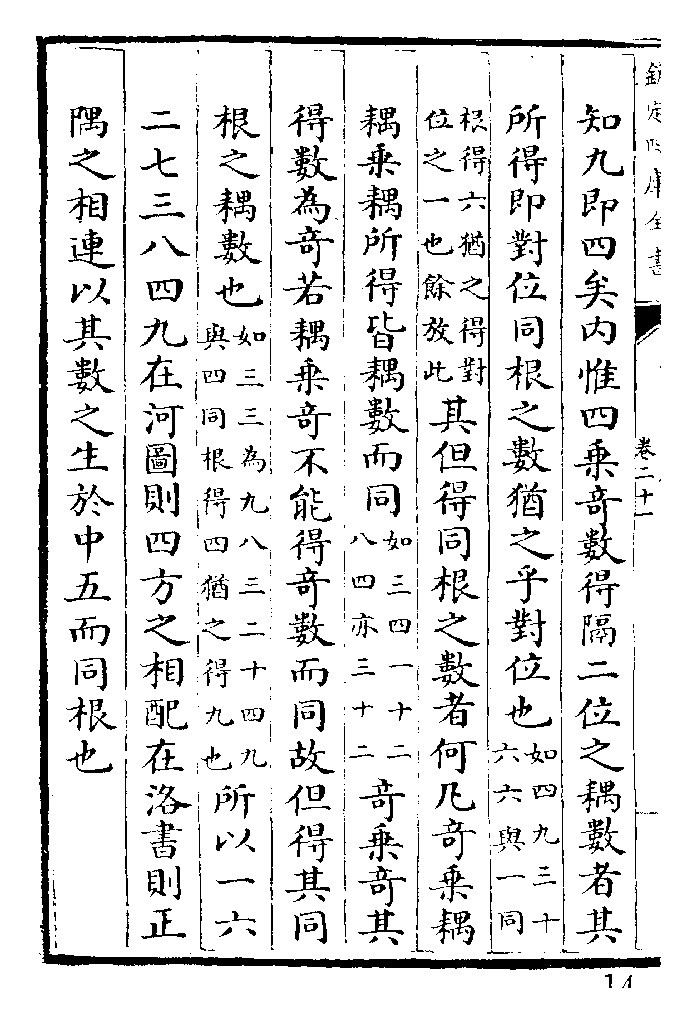 欽定四庫全書
卷二十一
知九即四矣内惟四乗竒數得隔二位之耦數者其
所得即對位同根之數猶之乎對位也如四九三十六六與一同
根得六猶之得對位之一也餘放此其但得同根之數者何凡竒乗耦
耦乗耦所得皆耦數而同如三四一十二八四亦三十二竒乗竒其
得數為竒若耦乗竒不能得竒數而同故但得其同
根之耦數也如三三為九八三二十四九與四同根得四猶之得九也所以一六
二七三八四九在河圖則四方之相配在洛書則正
隅之相連以其數之生於中五而同根也
14